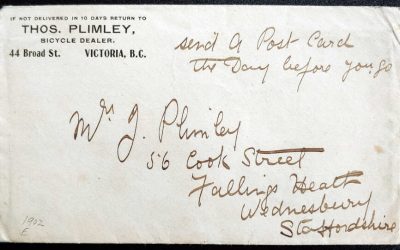 IF NOT DELIVERED IN 10 DAYS RETURN TO
THOS. PLIMLEY,
BICYCLE DEALER,
44 Broad St. VICTORIA, B.C.
send A Post Card
the Day before you go
Mr J. Plimley
56 Cook Street
Fallings Heath
Wednesbury
Staffordshire
1902
E